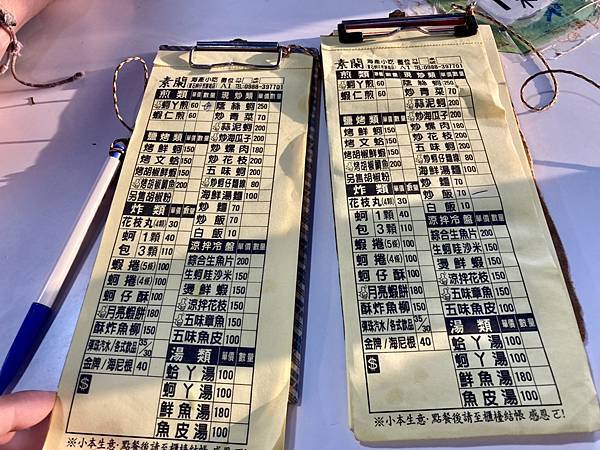 素蘭 海產小吃 攤位 八丨 TEL:0988-397701
煎類 單價 數量
蚵丫煎 60
蝦仁煎 60
鹽烤類 單價 數量
烤鮮蚵 150
烤文蛤 150
烤胡椒鮮蝦 150
烤胡椒鹹魚 200
另售胡椒粉
炸類 單價 數量
花枝丸(4顆) 30
蚵1顆 40
包3顆 110
蝦捲(5條) 100
蚵捲(5條) 100
蚵仔酥 100
月亮蝦餅 180
酥炸魚柳 150
彈珠汽水/各式飲品 35/30
金牌/海尼根 40
$
現炒類 單價 數量
蔭絲蚵 250
炒青菜 70
蒜泥蚵 200
炒海瓜子 200
炒螺肉 180
炒花枝 200
五味蚵 200
炒蚵仔麵線 80
海鮮湯麵 100
炒麵 70
炒飯 70
白飯 10
涼拌冷盤 單價 數量
綜合生魚片 200
生蚵哇沙米 150
燙鮮蝦 150
涼拌花枝 150
五味章魚 150
五味魚皮 100
湯類 單價 數量
蛤丫湯 100
蚵丫湯 100
鮮魚湯 180
魚皮湯 100
※小本生意·點餐後請至櫃檯結帳 感恩
素蘭 海產小吃 攤位 八丨 TEL:0988-397701
煎類 單價 數量
蚵丫煎 60
蝦仁煎 60
鹽烤類 單價 數量
烤鮮蚵 150
烤文蛤 150
烤胡椒鮮蝦 150
烤胡椒鹹魚 200
另售胡椒粉
炸類 單價 數量
花枝丸(4顆) 30
蚵1顆 40
包3顆 110
蝦捲(5條) 100
蚵捲(5條) 100
蚵仔酥 100
月亮蝦餅 180
酥炸魚柳 150
彈珠汽水/各式飲品 35/30
金牌/海尼根 40
$
現炒類 單價 數量
蔭絲蚵 250
炒青菜 70
蒜泥蚵 200
炒海瓜子 200
炒螺肉 180
炒花枝 200
五味蚵 200
炒蚵仔麵線 80
海鮮湯麵 100
炒麵 70
炒飯 70
白飯 10
涼拌冷盤 單價 數量
綜合生魚片 200
生蚵哇沙米 150
燙鮮蝦 150
涼拌花枝 150
五味章魚 150
五味魚皮 100
湯類 單價 數量
蛤丫湯 100
蚵丫湯 100
鮮魚湯 180
魚皮湯 100
※小本生意·點餐後請至櫃檯結帳 感恩ㄛ!